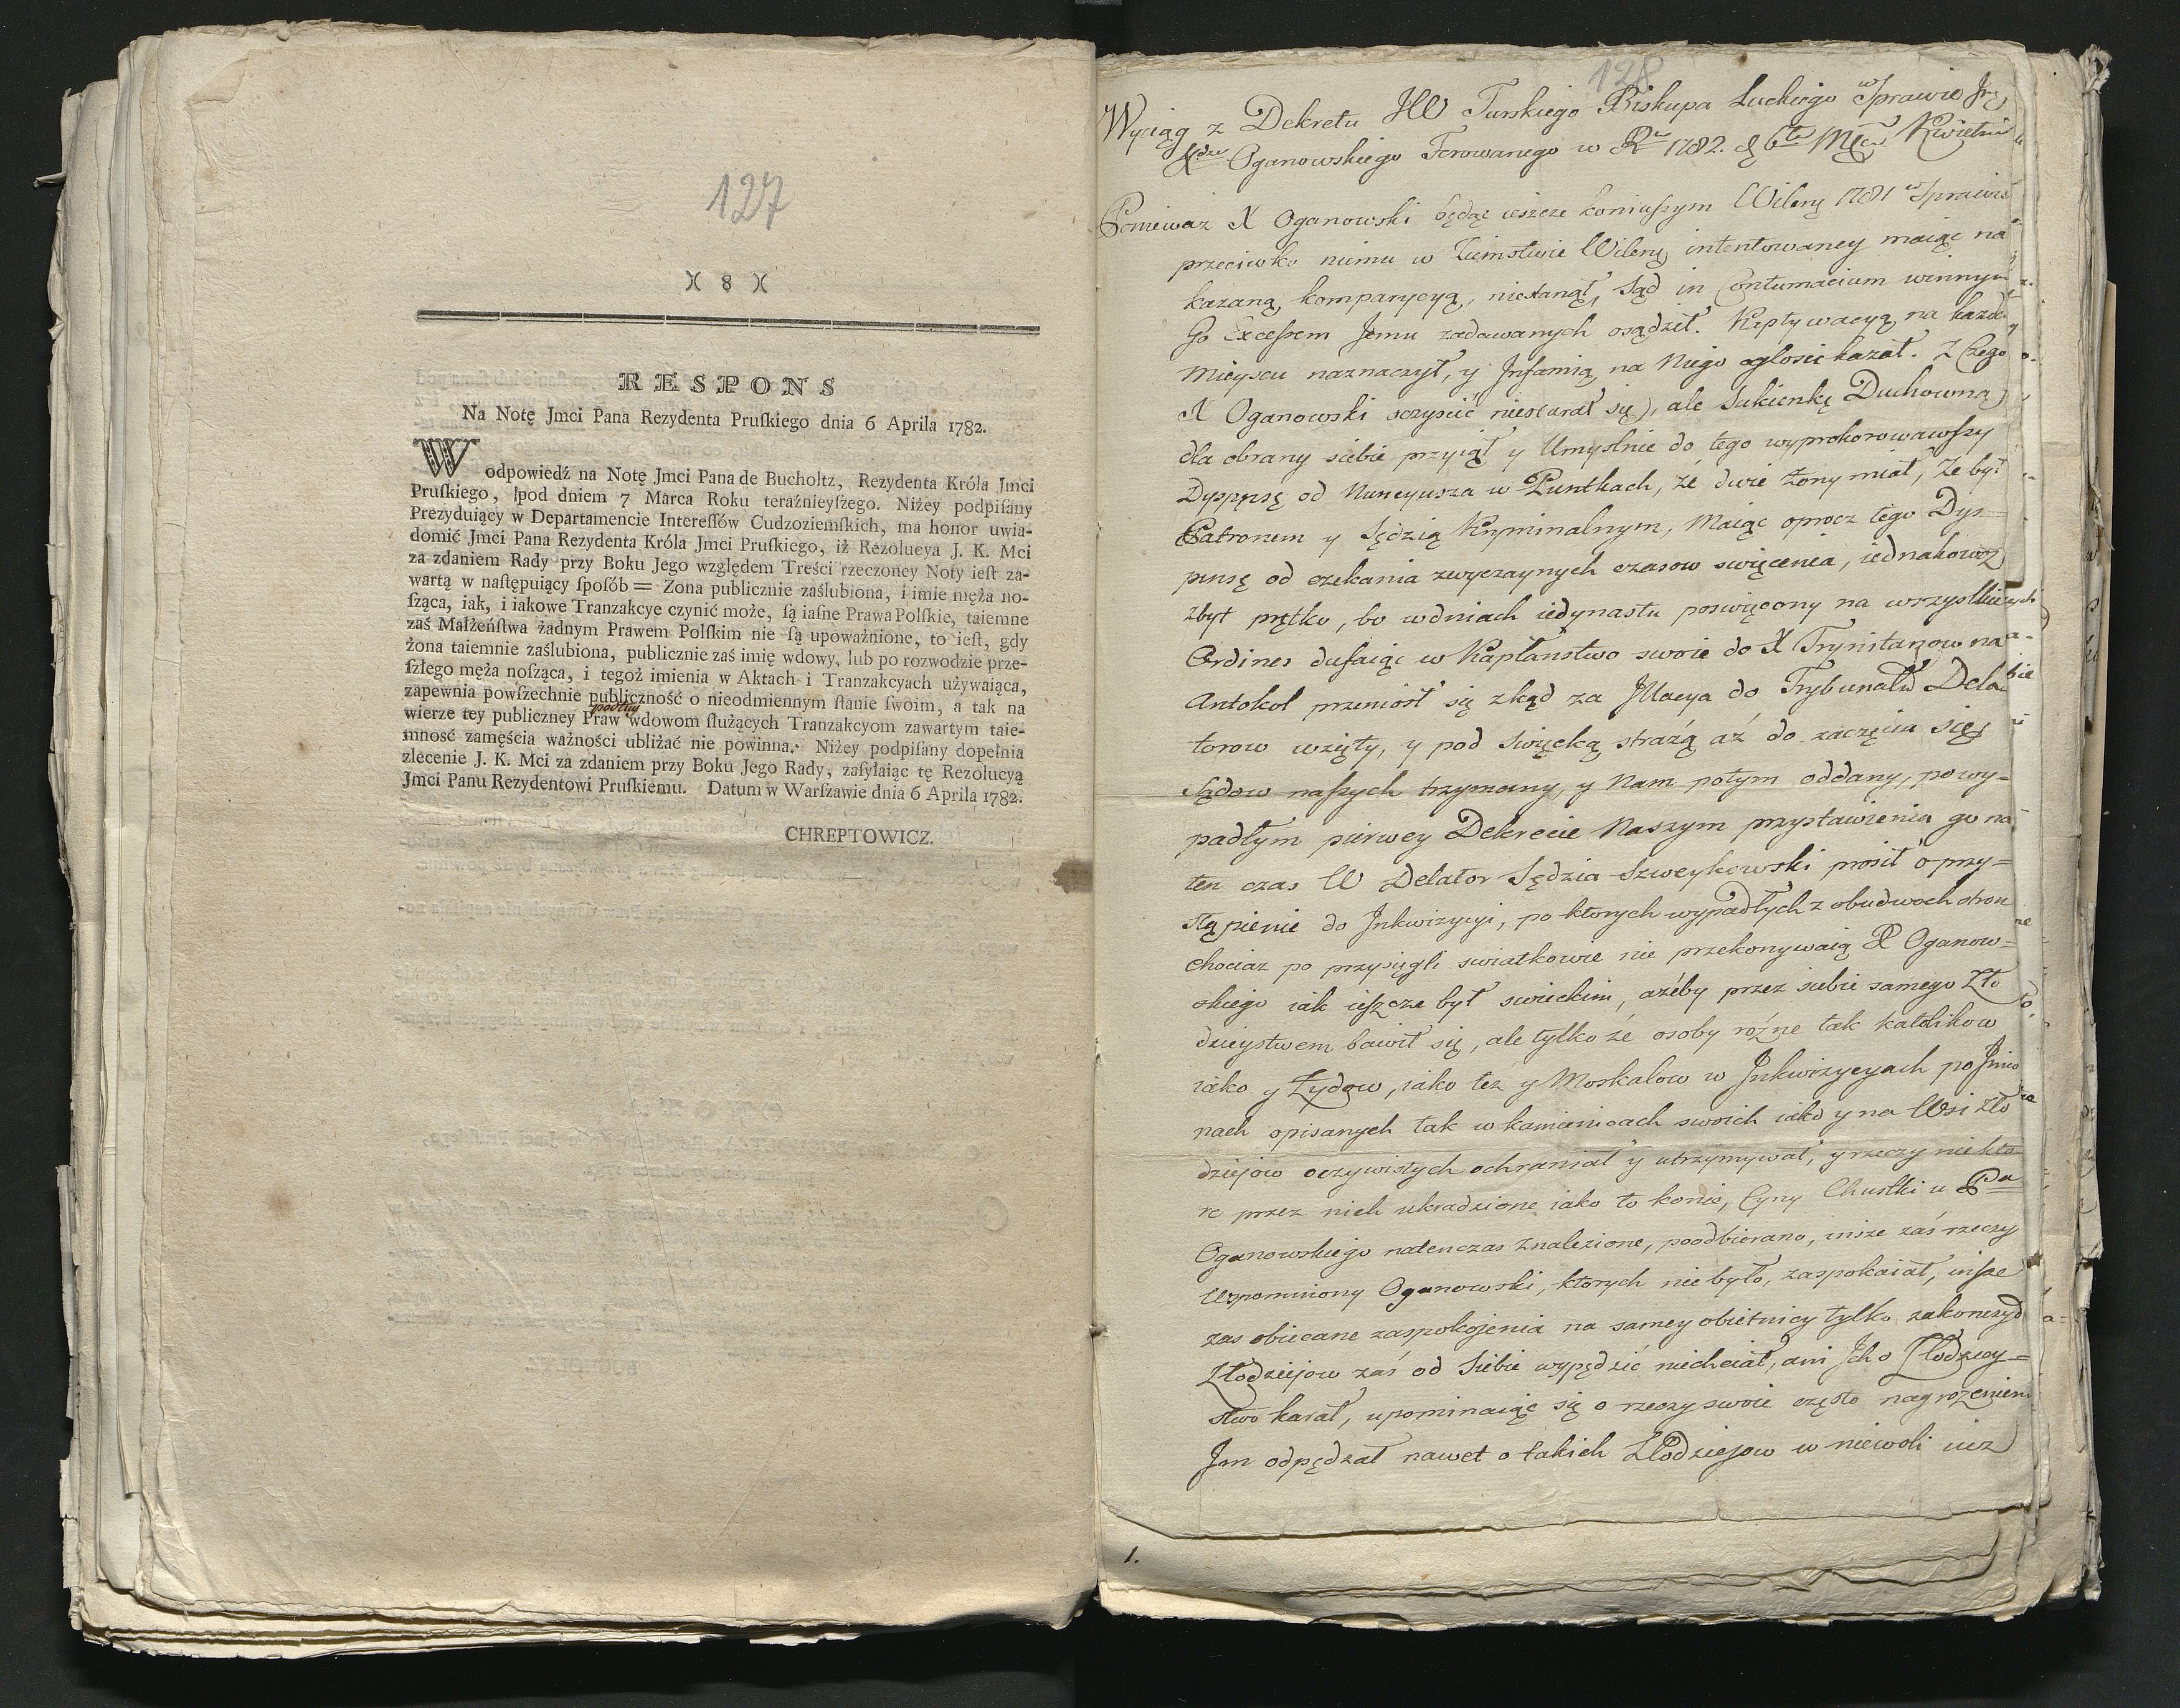 127
)( 8 )(
RESPONS
Na Notę Jmci Pana Rezydenta Pruſkiego dnia 6 Aprila 1782.
W odpowiedź na Notę Jmci Pana de Bucholtz, Rezydenta Króla Jmci
Pruſkiego, ſpod dniem 7 Marca Roku teraźnieyſzego. Niżey podpiſany
Prezyduiący w Departamencie Intereſſów Cudzoziemſkich, ma honor uwia-
domić Jmci Pana Rezydenta Króla Jmci Pruſkiego, iż Rezolucya J. K. Mci
za zdaniem Rady przy Boku Jego względem Treści rzeczoney Noty ieſt za-
wartą w naſtępuiący ſpoſób = Zona publicznie zaślubiona, i imie męża no-
ſząca, iak, i iakowe Tranzakcye czynić może, ſą iaſne Prawa Polſkie, taiemne
zaś Małżeńſtwa żadnym Prawem Polſkim nie ſą upoważnione, to ieſt, gdy
żona taiemnie zaślubiona, publicznie zaś imię wdowy, lub po rozwodzie prze-
ſzłego męża noſząca, i tegoż imienia w Aktach i Tranzakcyach używaiąca,
zapewnia powſzechnie publiczność o nieodmiennym ſtanie ſwoim, a tak na
podług
wierze tey publiczney Praw wdowom ſłużących Tranzakcyom zawartym taie-
mność zamęścia ważności ubliżać nie powinna. Niżey podpiſany dopełnia
zlecenie J. K. Mci za zdaniem przy Boku Jego Rady, zaſyłaiąc tę Rezolucyą
Jmci Panu Rezydentowi Pruſkiemu. Datum w Warſzawie dnia 6 Aprila 1782.
CHREPTOWICZ.
128
Wyciąg z Dekretu JW Turskiego Biskupa Luckiego w Sprawie
Xdza Oganowskiego Ferowanego w Ru 1782. d 6te Mca Kwietnia
Ponieważ X Oganowski będąc ieszcze koniuszym Wileny 1781 w Sprawie
przeciwko niemu w Ziemstwie Wileny intentowaney maiąc na
kazaną kompanycyą, niestanął, Sąd in Contumaciam winnym
Go Excessem Jemu zadawanych osądził. Kaptywacyą na każde
mieyscu naznaczył, y Jnfamią na Niego ogłosić kazał. Z Czego
X Oganowski oczyścić niestarał się, ale Sukienkę Duchowną
dla obrany siebie przyiął y Umyslnie do tego wyprokorowawszy
Dyspensę od Nuncyusza w Punktach, że dwie Zony miał, Ze był
Patronem y Sędzią Kryminalnym, Maiąc oprocz tego Dys=
pensę od czekania zwyczaynych czasow swięcenia, iednakowoz
zbyt prętko, bo w dniach iedynastu poswięcony na wszystkie
Ordines dufaiąc w Kapłanstwo swoie do X Trynitarzow na
Antokol przeniosł się zkąd za Jllacya do Trybunału Dela
torow wzięty, y pod Swięcką strażą aż do zaczęcia się
Sądow naszych trzymany, y Nam potym oddany, po wy=
padłym pierwey Dekrecie Naszym przystawienia go na
ten czas W Delator Sędzia Szweykowski prosił o przy=
stąpienie do Jnkwizycyi, po ktorych wypadłych z obudwoch stron
chociaz po przysięgli swiatkowie nie przekonywaią X Oganow=
skiego iak ieszcze był swieckim, ażeby przez siebie samego Zło
dzieystwem bawił się, ale tylko że osoby rożne tak katolikow
iako y Żydow, iako też y Moskalow w Jnkwizycyach po Jmio
nach opisanych tak w kamienicach swoich iako y na Wsi Zło
dziejow oczywistych ochraniał y utrzymywał, y rzeczy niekto
re przez nich ukradzione iako to konie, Cyny Chustki u Pa
Oganowskiego natenczas znalezione, poodbierano, insze zaś rzeczy
Wspomniony Oganowski, ktorych nie było, zaspokaiał, insze
zas obiecane zaspokojenia na samey obietnicy tylko zakonczył
Złodziejow zaś od Siebie wypędzić niechciał, ani Jch o Złodziey=
stwo karał, upominaiąc się o rzeczy swoie często nagrożeniem
Jm odpędzał nawet o takich Złodziejow w niewoli iuz
1.